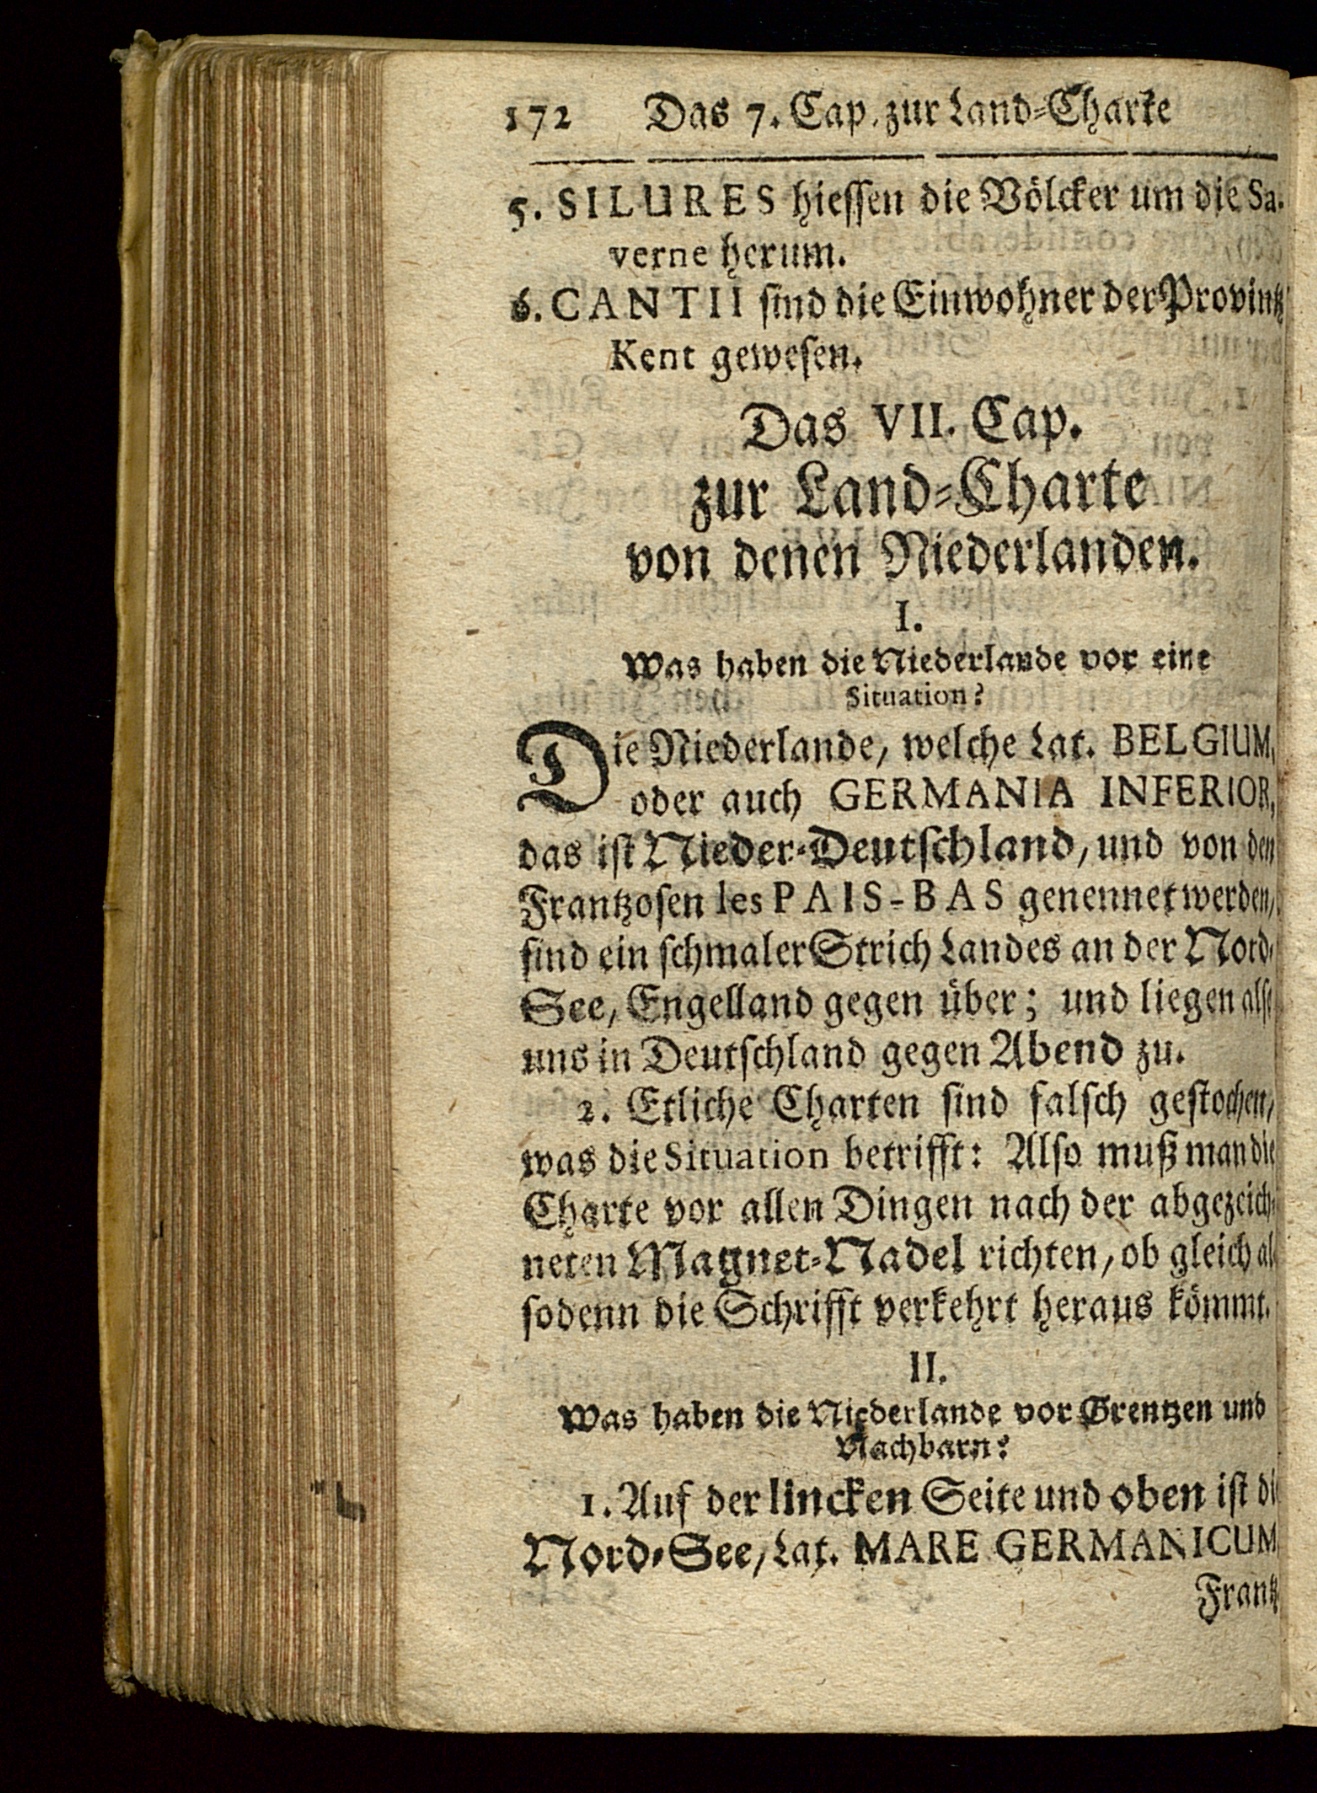 172 Das 7. Cap. zur Land-Charte
5. SILURES hiessen die Völcker um die Sa-
verne herum.
6. CANTII sind die Einwohner der Provintz
Kent gewesen.
Das VII. Cap.
zur Land-Charte
von denen Niederlanden.
I.
Was haben die Niederlande vor eine
Situation?
Die Niederlande, welche Lat. BELGIUM,
oder auch GERMANIA INFERIOR,
das ist Nieder-Deutschland, und von den
Frantzosen les PAIS-BAS genennet werden,
sind ein schmaler Strich Landes an der Nord-
See, Engelland gegen über; und liegen also
uns in Deutschland gegen Abend zu.
2. Etliche Charten sind falsch gestochen,
was die Situation betrifft: Also muß man die
Charte vor allen Dingen nach der abgezeich-
neten Magnet-Nadel richten, ob gleich al-
sodenn die Schrifft verkehrt heraus kömmt.
II.
Was haben die Niederlande vor Grentzen und
Nachbarn?
1. Auf der lincken Seite und oben ist die
Nord-See, Lat. MARE GERMANICUM
Frantz